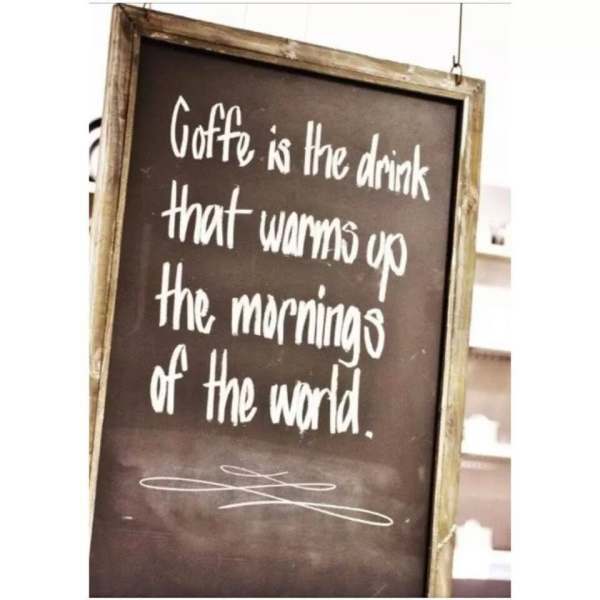 Coffe is the drink
that warms up
the mornings
of the world.